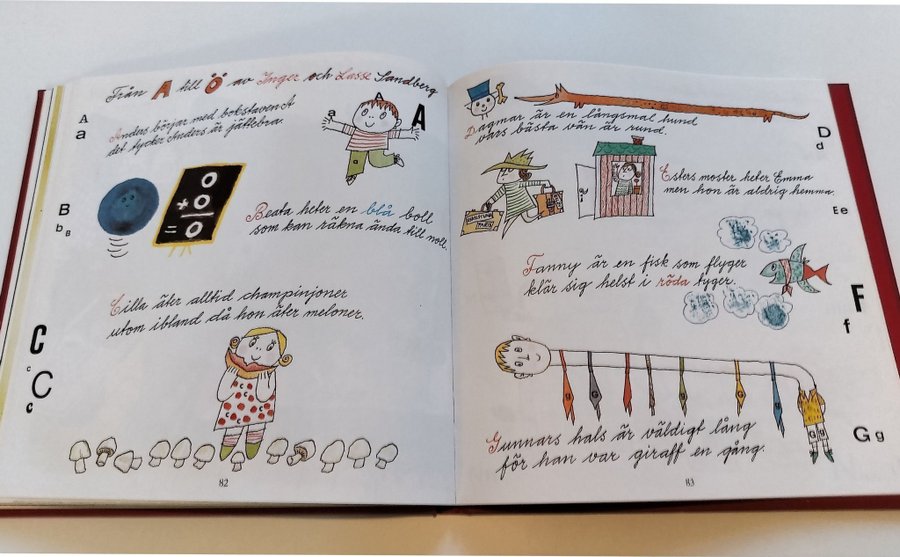 Från A till Ö av Inger och Lasse Sandberg
A
a
Anders börjar med bokstaven A
det tycker Anders är jättebra.
a
A
B
b B
0
+0
=0
Beata heter en blå boll
som kan räkna ända till noll.
Cilla äter alltid champinjoner
utom ibland då hon äter meloner.
C
c
C
c
82
Dagmar är en långsmal hund
vars bästa vän är rund.
D
d
Esters moster heter Emma
men hon är aldrig hemma.
E e
Fanny är en fisk som flyger
klär sig helst i röda tyger.
F
f
G
G
G
G g
Gunnars hals är väldigt lång
för han var giraff en gång.
G g
83